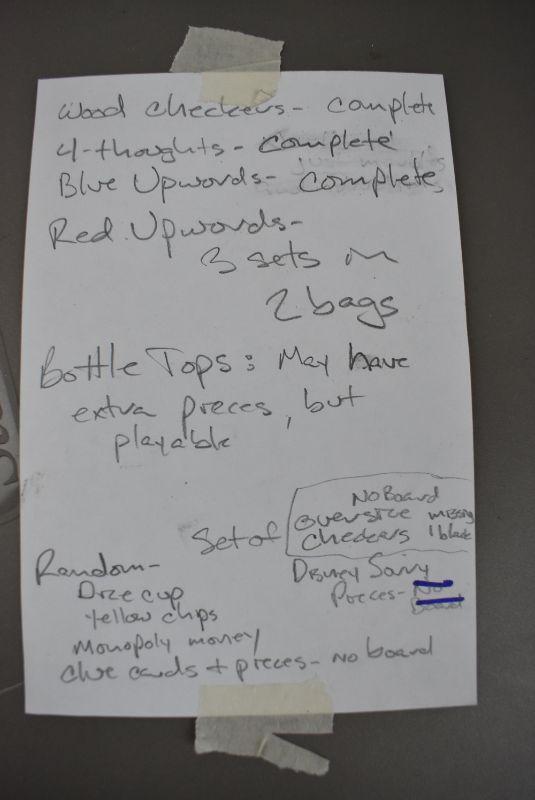 Wood Checkers - Complete
4-thoughts - Complete
Blue Upwords - Complete
Red Upwords -
3 sets in
2 bags
Bottle Tops: May have
extra pieces, but
playable
Set of
No Board
oversize missing
checkers 1 black
Random -
Dice cup
Yellow chips
Monopoly money
Clue cards + pieces - no board
Disney Sorry
Pieces - No
Board